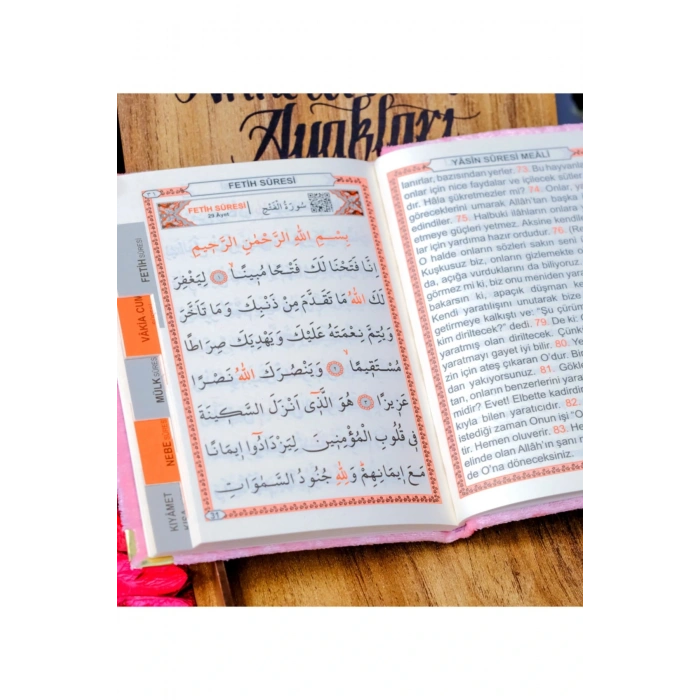 Ayakları
FETİH SÛRESİ
FETİH SÛRESİ
29 Âyet
سُورَةُ الْفَتْحِ
بِسْمِ اللّٰهِ الرَّحْمٰنِ الرَّحِيمِ
اِنَّا فَتَحْنَا لَكَ فَتْحًا مُبِينًاۙ ﴿١﴾ لِيَغْفِرَ
لَكَ اللّٰهُ مَا تَقَدَّمَ مِنْ ذَنْبِكَ وَمَا تَاَخَّرَ
وَيُتِمَّ نِعْمَتَهُ عَلَيْكَ وَيَهْدِيَكَ صِرَاطًا
مُسْتَقِيمًاۙ ﴿٢﴾ وَيَنْصُرَكَ اللّٰهُ نَصْرًا
عَزِيزًا ﴿٣﴾ هُوَ الَّذٓي اَنْزَلَ السَّكِينَةَ
فِي قُلُوبِ الْمُؤْمِنِينَ لِيَزْدَادُٓوا اِيمَانًا
مَعَ اِيمَانِهِمْ وَلِلّٰهِ جُنُودُ السَّمٰوَاتِ
31
FETİH SÛRESİ
VÂKIA CUN
MÜLK SÛRESİ
NEBE SÛRESİ
KIYÂMET
YÂSÎN SÛRESİ MEÂLİ
lanırlar, bazısından yerler. 73. Bu hayvanla
onlar için nice faydalar ve içilecek sütler
dır. Hâla şükretmezler mi? 74. Onlar, y
göreceklerini umarak Allâh'tan başka
edindiler. 75. Halbuki ilâhların onlara
etmeye güçleri yetmez. Aksine kendil
lar için yardıma hazır ordudur. 76. (Re
O halde onların sözleri sakın seni
Kuşkusuz biz, onların gizlemekte
da, açığa vurduklarını da biliyoruz.
görmez mi ki, biz onu meniden yara
bakarsın ki, apaçık düşman kes
Kendi yaratılışını unutarak bize
getirmeye kalkıştı ve: "Şu çürüm
kim diriltecek?" dedi. 79. De ki:
yaratmış olan diriltecek. Çünkü
yaratmayı gayet iyi bilir. 80. Ye
zin için ateş çıkaran O'dur. Bir
dan yakıyorsunuz. 81. Gökl
tan, onların benzerlerini yara
midir? Evet! Elbette kadirdir
kıyla bilen yaratıcıdır. 82.
istediği zaman Onun işi "O
tir. Hemen oluverir. 83. He
elinde olan Allâh'ın şanı n
de O'na döneceksiniz.